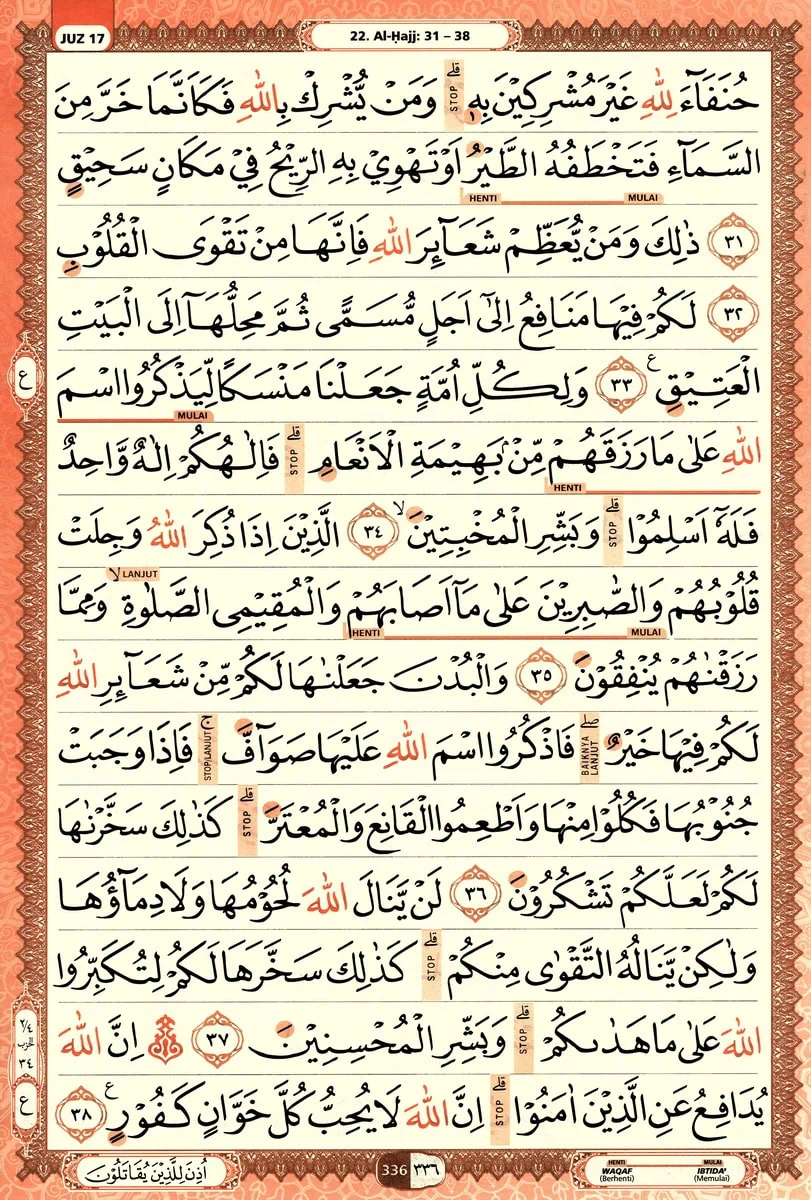 JUZ 17
22. Al-Ḥajj: 31 – 38
حُنَفَاۤءَ لِلّٰهِ غَيْرَ مُشْرِكِيْنَ بِهٖۗ وَمَنْ يُّشْرِكْ بِاللّٰهِ فَكَاَنَّمَا خَرَّ مِنَ
STOP
السَّمَاۤءِ فَتَخْطَفُهُ الطَّيْرُ اَوْ تَهْوِيْ بِهِ الرِّيْحُ فِيْ مَكَانٍ سَحِيْقٍ
HENTI MULAI
٣١ ذٰلِكَ وَمَنْ يُّعَظِّمْ شَعَاۤىِٕرَ اللّٰهِ فَاِنَّهَا مِنْ تَقْوَى الْقُلُوْبِ
٣٢ لَكُمْ فِيْهَا مَنَافِعُ اِلٰٓى اَجَلٍ مُّسَمًّى ثُمَّ مَحِلُّهَآ اِلَى الْبَيْتِ
الْعَتِيْقِ ࣖ ٣٣ وَلِكُلِّ اُمَّةٍ جَعَلْنَا مَنْسَكًا لِّيَذْكُرُوا اسْمَ
MULAI
اللّٰهِ عَلٰى مَا رَزَقَهُمْ مِّنْۢ بَهِيْمَةِ الْاَنْعَامِۗ فَاِلٰهُكُمْ اِلٰهٌ وَّاحِدٌ
STOP
HENTI
فَلَهٗٓ اَسْلِمُوْاۗ وَبَشِّرِ الْمُخْبِتِيْنَۙ ٣٤ الَّذِيْنَ اِذَا ذُكِرَ اللّٰهُ وَجِلَتْ
STOP
LANJUT
قُلُوْبُهُمْ وَالصّٰبِرِيْنَ عَلٰى مَآ اَصَابَهُمْ وَالْمُقِيْمِى الصَّلٰوةِۙ وَمِمَّا
HENTI MULAI
رَزَقْنٰهُمْ يُنْفِقُوْنَ ٣٥ وَالْبُدْنَ جَعَلْنٰهَا لَكُمْ مِّنْ شَعَاۤىِٕرِ اللّٰهِ
لَكُمْ فِيْهَا خَيْرٌۖ فَاذْكُرُوا اسْمَ اللّٰهِ عَلَيْهَا صَوَاۤفَّۚ فَاِذَا وَجَبَتْ
BAIKNYA LANJUT
STOP/LANJUT
جُنُوْبُهَا فَكُلُوْا مِنْهَا وَاَطْعِمُوا الْقَانِعَ وَالْمُعْتَرَّۗ كَذٰلِكَ سَخَّرْنٰهَا
STOP
لَكُمْ لَعَلَّكُمْ تَشْكُرُوْنَ ٣٦ لَنْ يَّنَالَ اللّٰهَ لُحُوْمُهَا وَلَا دِمَاۤؤُهَا
وَلٰكِنْ يَّنَالُهُ التَّقْوٰى مِنْكُمْۗ كَذٰلِكَ سَخَّرَهَا لَكُمْ لِتُكَبِّرُوا
STOP
اللّٰهَ عَلٰى مَا هَدٰىكُمْۗ وَبَشِّرِ الْمُحْسِنِيْنَ ٣٧ اِنَّ اللّٰهَ
STOP
يُدَافِعُ عَنِ الَّذِيْنَ اٰمَنُوْاۗ اِنَّ اللّٰهَ لَا يُحِبُّ كُلَّ خَوَّانٍ كَفُوْرٍ ࣖ ٣٨
STOP
ع
٢/٤
الحزب
٣٤
ع
اُذِنَ لِلَّذِيْنَ يُقَاتَلُوْنَ
336 ٣٣٦
HENTI MULAI
WAQAF IBTIDA'
(Berhenti) (Memulai)